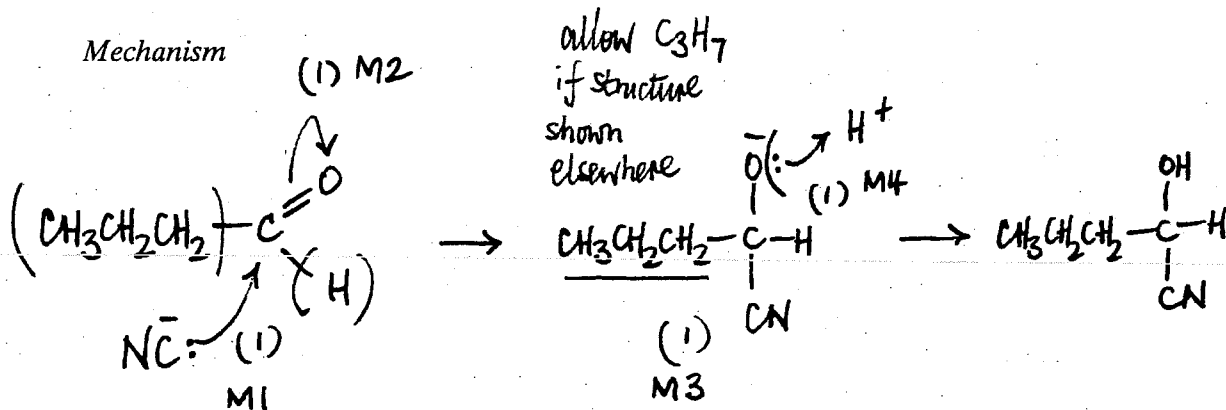 Mechanism
(1) M2
allow C3H7
if structure
shown
elsewhere
(CH3CH2CH2)–C=O
(H)
NC̄:
(1)
M1
Ō(: H+
(1) M4
CH3CH2CH2–C–H
CN
(1)
M3
OH
CH3CH2CH2–C–H
CN